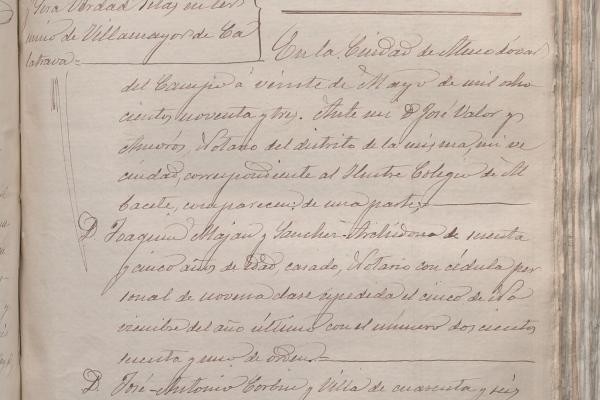 para Verdad Pelas en ter
mino de Villamayor de Ca
latrava=
En la Ciudad de Almodóvar
del Campo á veinte de Mayo de mil ocho
cientos noventa y tres. Ante mi D. José Valor y
Amorós, Notario del distrito de la misma, mi ve
ciudad, correspondiente al Ilustre Colegio de Al
bacete, comparecen: de una parte;
D. Joaquin Maján y Sanchez-Archidona de sesenta
y cinco años de edad, casado, Notario con cédula per
sonal de novena clase espedida el cinco de No
viembre del año último con el número dos cientos
sesenta y uno de orden.
D. José-Antonio Corbin y Villa de cuarenta y seis